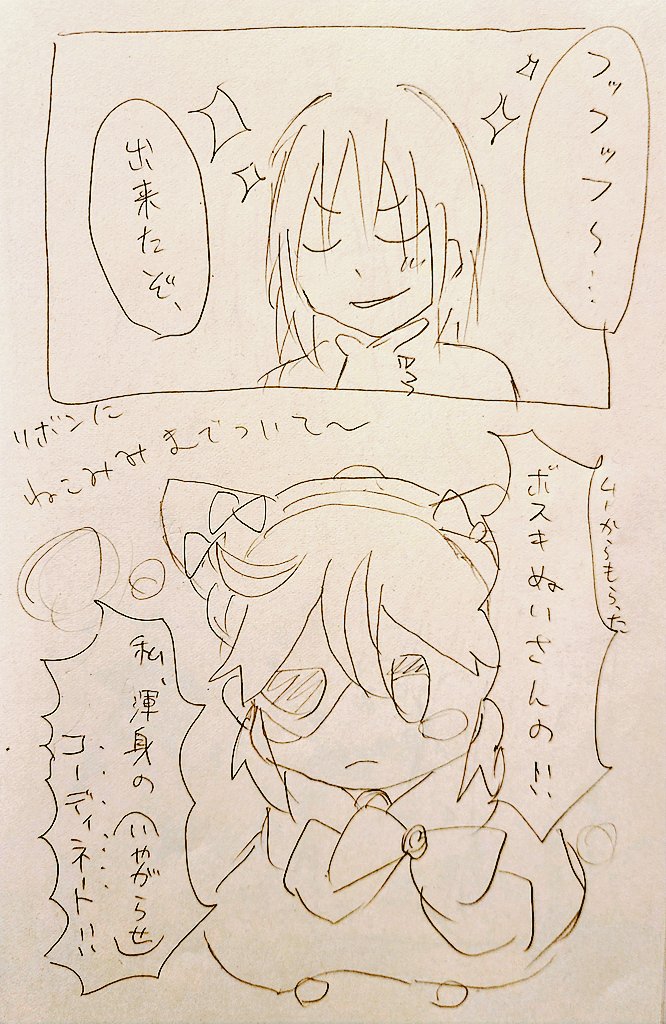 フッフッフ〜…
出来たぞ、
ムーからもらった
ボスキぬいさんの!!
リボンに
ねこみみまでついて〜
私、渾身の(いやがらせ)
コーディネート!!